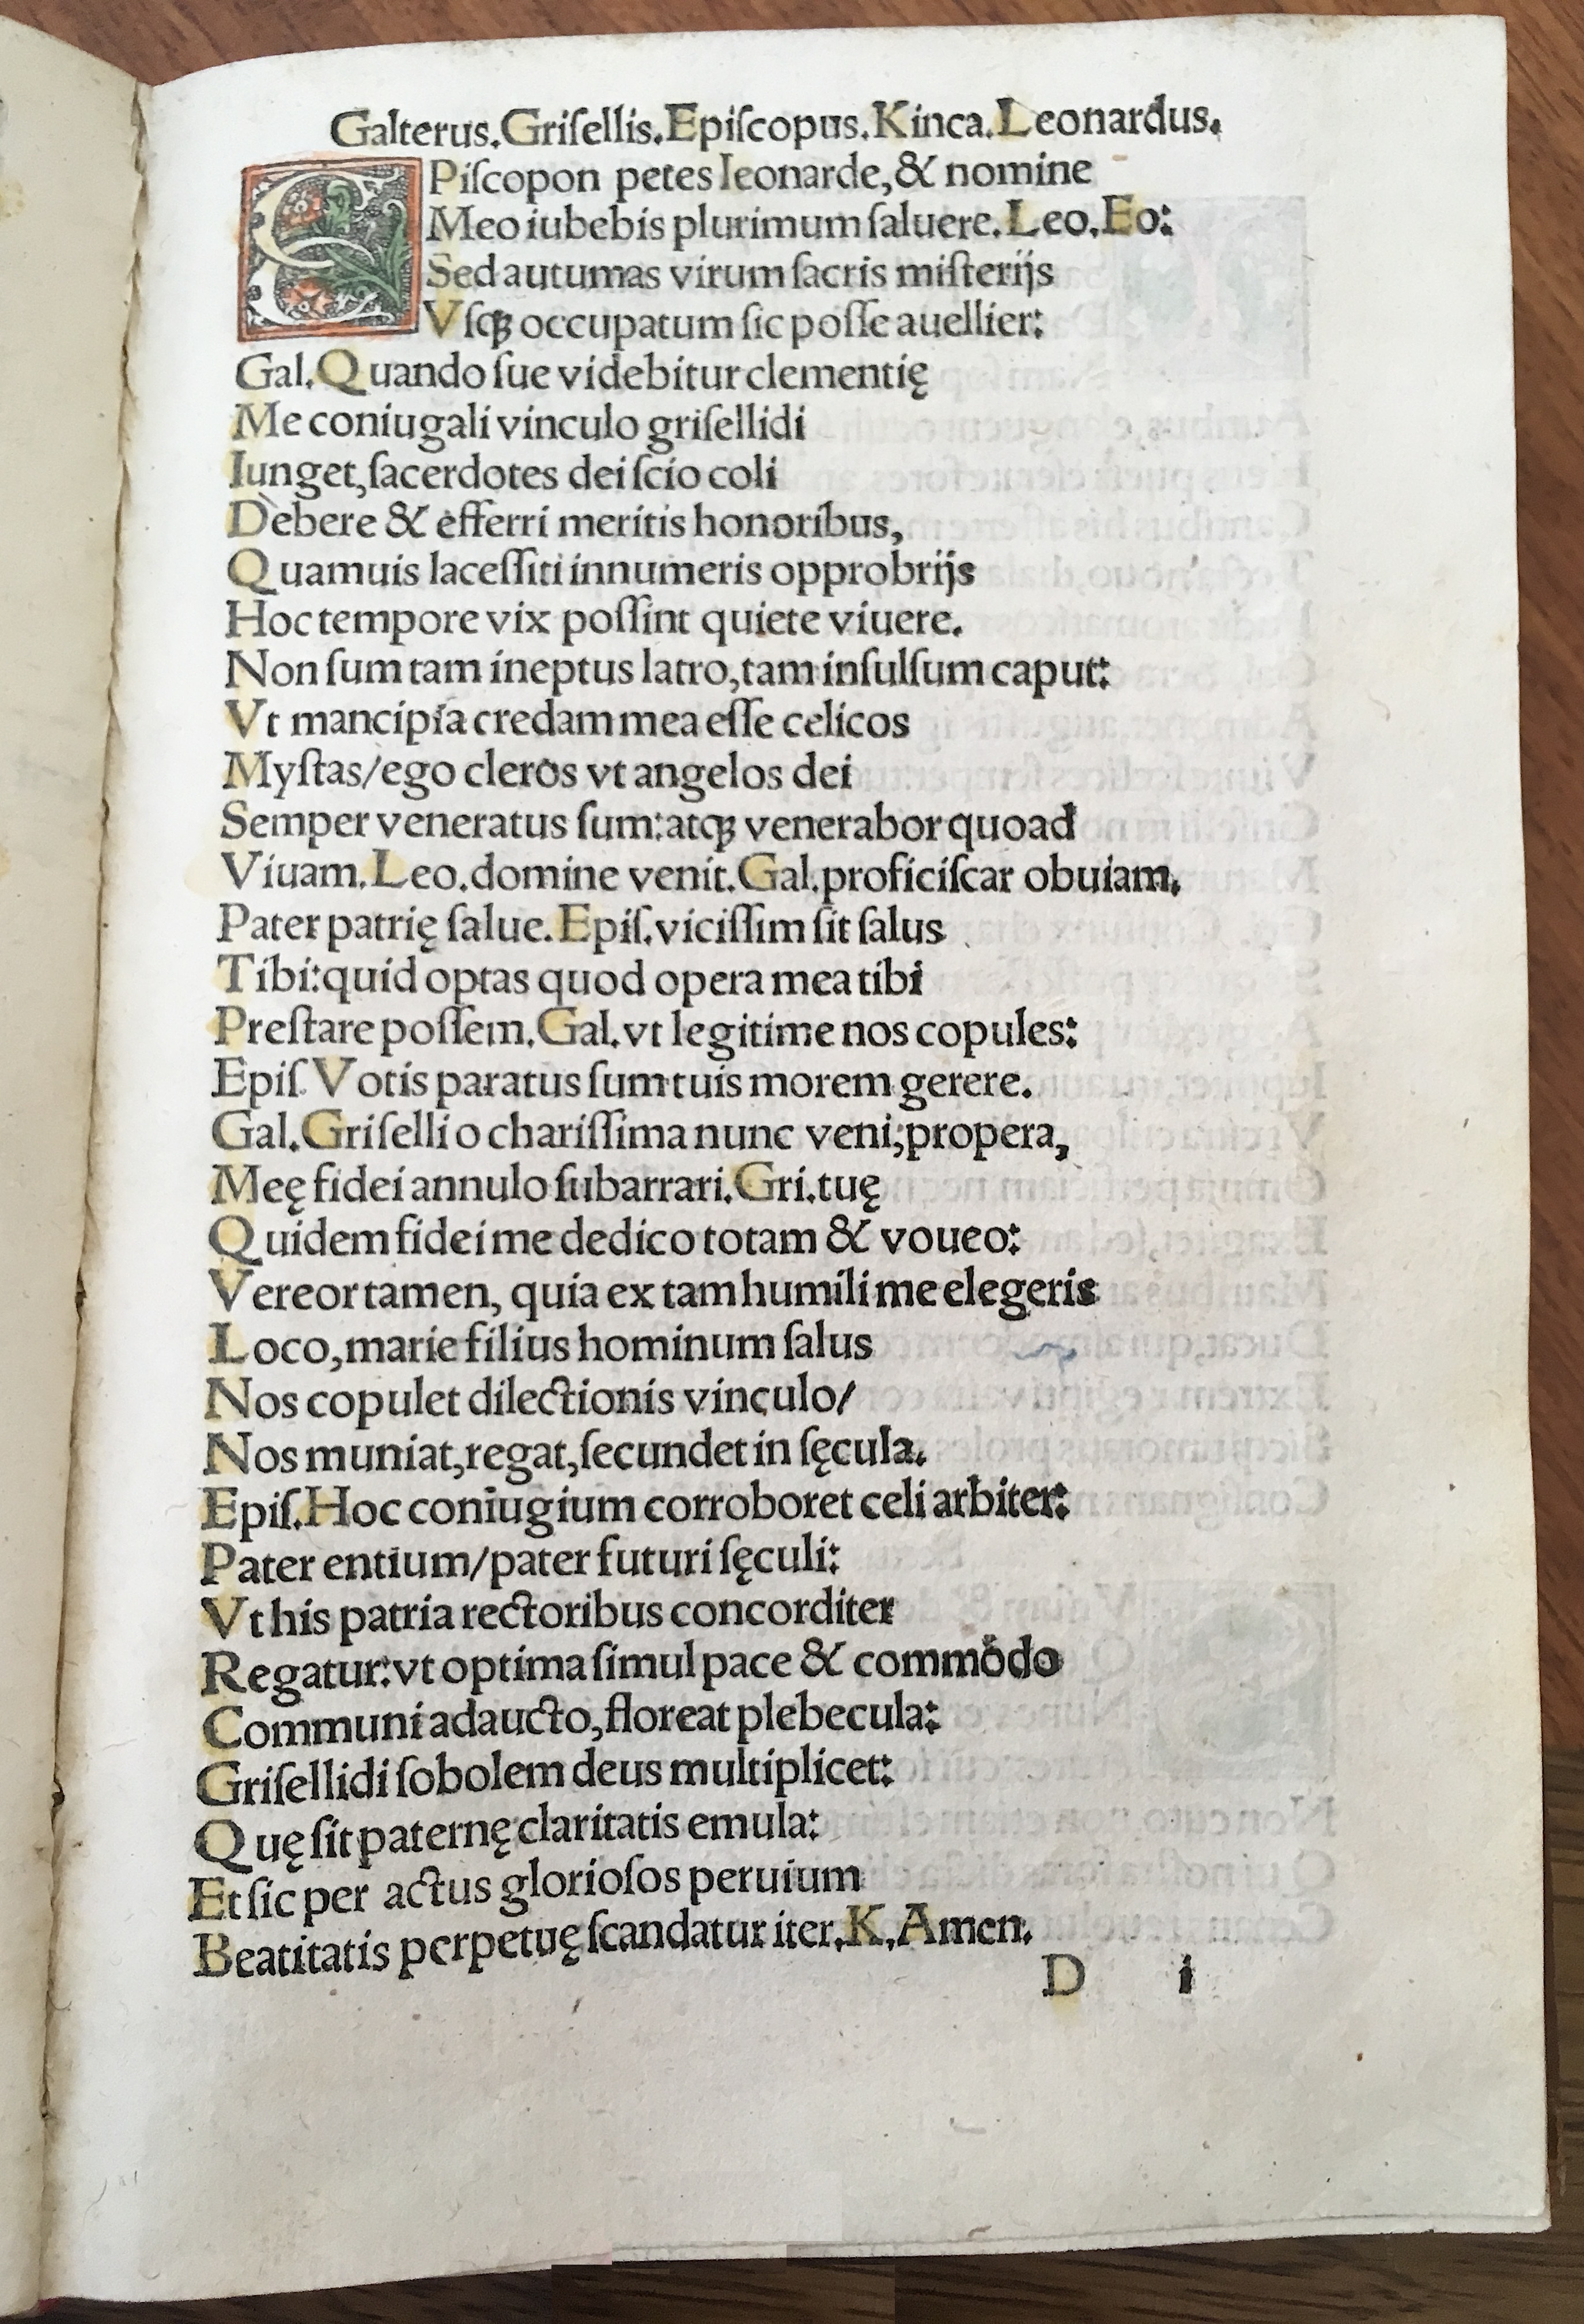 Galterus.Griſellis.Epiſcopus.Kinca.Leonardus.
EPiſcopon petes leonarde,& nomine
Meo iubebis plurimum ſaluere.Leo.Eo:
Sed autumas virum ſacris miſterijs
Vſqꝫ occupatum ſic poſſe auellier:
Gal.Quando ſue videbitur clementię
Me coniugali vinculo griſellidi
Iunget,ſacerdotes dei ſcio coli
Debere & efferri meritis honoribus,
Quamuis laceſſiti innumeris opprobrijs
Hoc tempore vix poſſint quiete viuere.
Non ſum tam ineptus latro,tam inſulſum caput:
Vt mancipia credam mea eſſe celicos
Myſtas/ego cleros vt angelos dei
Semper veneratus ſum:atqꝫ venerabor quoad
Viuam.Leo.domine venit.Gal.proficiſcar obuiam.
Pater patrię ſalue.Epiſ.viciſſim ſit ſalus
Tibi:quid optas quod opera mea tibi
Preſtare poſſem.Gal.vt legitime nos copules:
Epiſ.Votis paratus ſum tuis morem gerere.
Gal.Griſelli o chariſſima nunc veni;propera,
Meę fidei annulo ſubarrari.Gri.tuę
Quidem fidei me dedico totam & voueo:
Vereor tamen, quia ex tam humili me elegeris
Loco,marie filius hominum ſalus
Nos copulet dilectionis vinculo/
Nos muniat,regat,ſecundet in ſęcula.
Epiſ.Hoc coniugium corroboret celi arbiter:
Pater entium/pater futuri ſęculi:
Vt his patria rectoribus concorditer
Regatur:vt optima ſimul pace & commodo
Communi adaucto,floreat plebecula:
Griſellidi ſobolem deus multiplicet:
Quę ſit paternę claritatis emula:
Et ſic per actus glorioſos peruium
Beatitatis perpetuę ſcandatur iter.K.Amen.
D i